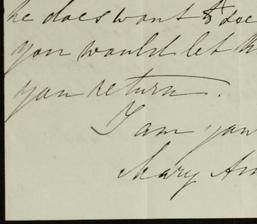 he does want to see
you would let th
you return.
I am you
Mary An